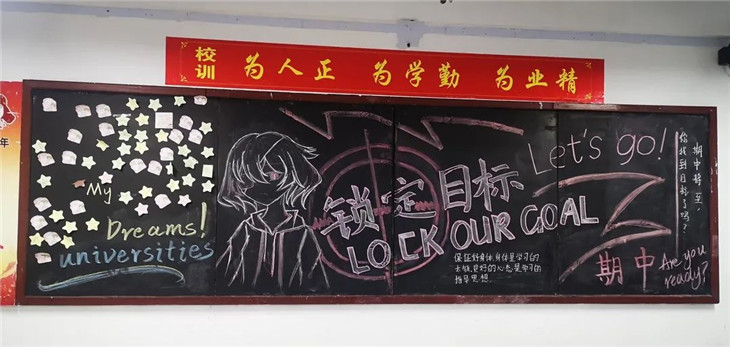 校训
为人正 为学勤 为业精
年
My
Dreams!
universities
锁定目标
LOCK OUR GOAL
保证好身体,身体是学习的
本钱,更好的心态是学习的
指导思想
Let's go!
期中将至,
你找到目标了吗?
期中
Are you
ready?